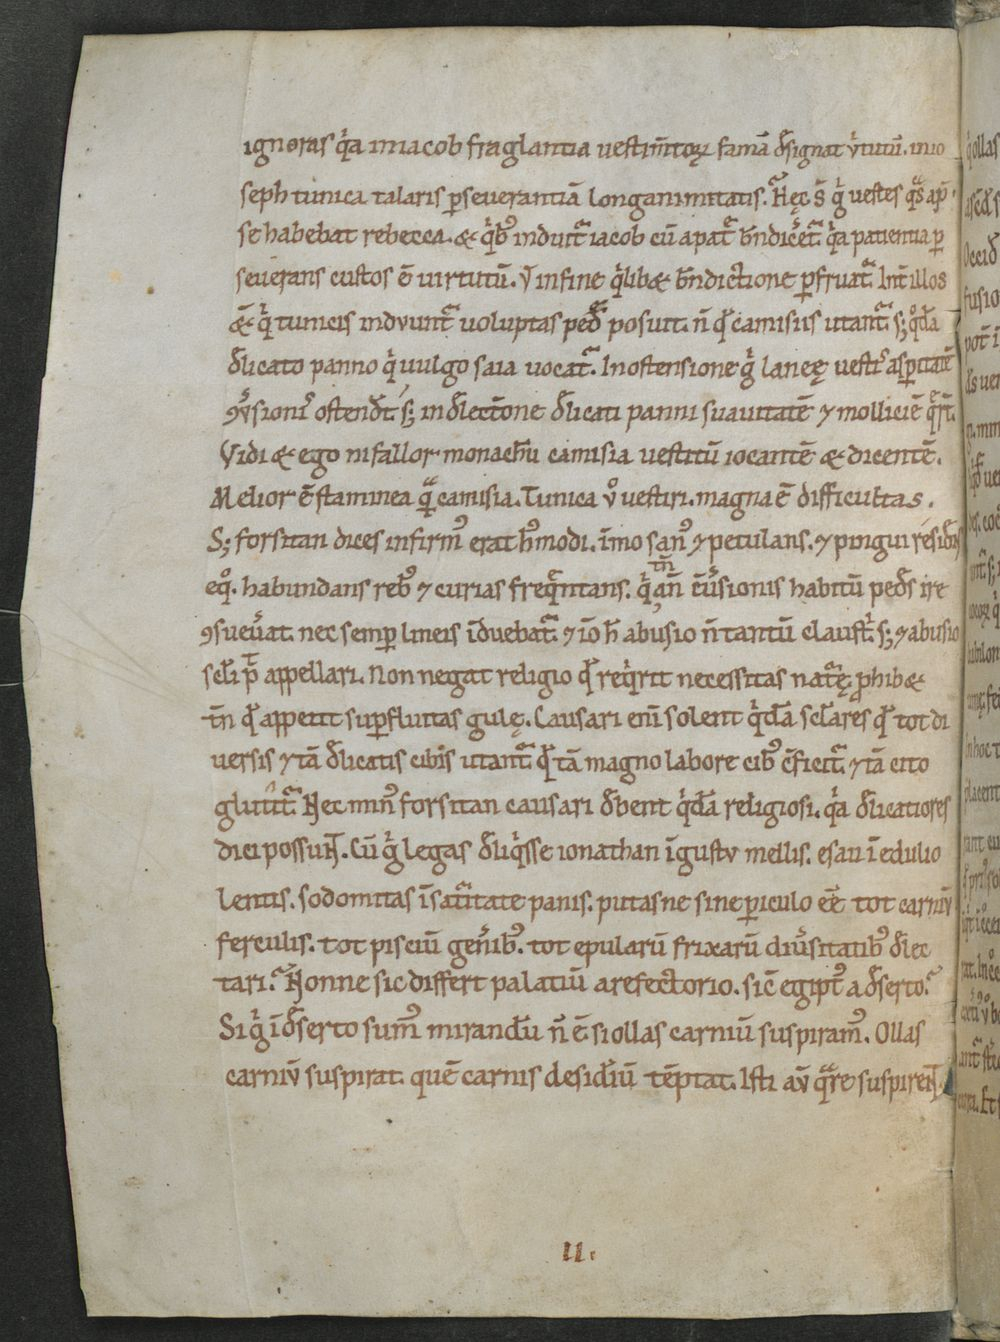 ignoras q̇a in iacob fraglantia uestim̅toꝝ famā d̅signat v̅tutū. in io
seph tunica talaris ꝑseuerantiā longanimitatis. Hęc s̅ g̓ uestes qͣs ap̅
se habebat rebecca. & q̇bꝰ indutꝰ iacob cū a pat̅ b̅ndic̅et̅. q̇a patientia ꝑ
seuerans custos ē uirtutū. V̓ in fine q̓lib& b̅ndictione ꝑfruat̅. Int̅ illos
&̅ q̇ tunicis induunt̅ uoluptas pedē posuit. n̅ qd̅ camisiis utant̅ s; qͦdā
d̅licato panno q̇ uulgo saia uocat̅. In ostensione g̓ laneę uestis asꝑitatē
ꝯu̅sionis ostend̅t s; in d̅lectōne d̅licati panni suauitatē ⁊ molliciē qͣr̅t.
Vidi & ego ni fallor monachū camisia uestitū iocantē & dicentē.
Melior ē staminea qͣ camisia. Tunica uͦ uestiri. magna ē difficultas.
S; forsitan dices infirmꝰ erat hꝰmodi. im̅o sanꝰ ⁊ petulans. ⁊ pingui residens
eqͦ. habundans rebꝰ ⁊ curias freq̅ntans. q̇ tn̅ an̅ cu̅sionis habitū pedes ire
ꝯsueu̅at. nec semꝑ lineis īduebat̅. ⁊ iō h̅ abusio n̅ tantū claust̅ s; ⁊ abusio
scl̅i pt̅ appellari. Non negat religio qd̅ req̇rit necessitas nat̅ę. ꝓhib&
tn̅ qd̅ appetit suꝑfluitas gulę. Causari eni̅ solent q̇dā scl̅ares qd̅ tot di
uersis ⁊ tā d̅licatis cibis utant̅ qd̅ tā magno labore cibꝰ ꝯficit̅ ⁊ tā cito
glutit̅. Nec minꝰ forsitan causari d̅bent q̇dā religiosi. q̇a d̅licatiores
dici possunt. Cū g̓ legas d̅liq̇sse ionathan ī gustu mellis. esau ī edulio
lentis. sodomitas ī sat̅itate panis. putasne sine ꝑiculo ēe̅ tot carniū
ferculis. tot pisciū gen̅ibꝰ. tot epularū frixarū diu̅sitatibꝰ d̅lec
tari. Nonne sic differt palatiū a refectorio. sic̅ egiptꝰ a d̅serto.
Si g̓ ī d̅serto sumꝰ mirandū n̅ ē si ollas carniū suspiramꝰ. Ollas
carniū suspirat. quē carnis desid̅iū tēptat. Isti au̅ qͣre suspirent.
II.